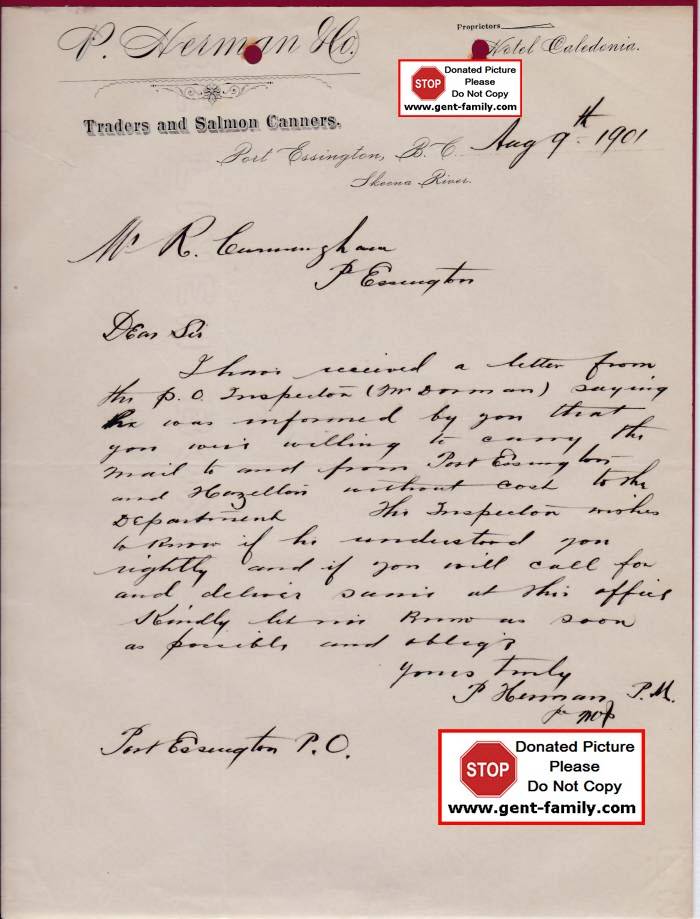 P. Herman & Co.
Proprietors
Hotel Caledonia.
STOP
Donated Picture
Please
Do Not Copy
www.gent-family.com
Traders and Salmon Canners.
Port Essington, B.C. Aug 9th 1901
Skeena River.
Mr R. Cunningham
P Essington
Dear Sir
I have received a letter from
the P.O. Inspector (Mr Dorman) saying
he was informed by you that
you were willing to carry the
mail to and from Port Essington
and Hazelton without cost to the
Department The Inspector wishes
to know if he understood you
rightly and if you will call for
and deliver same at this office
Kindly let me know as soon
as possible and oblige
Yours truly
P Herman P.M.
Port Essington P.O.
STOP
Donated Picture
Please
Do Not Copy
www.gent-family.com